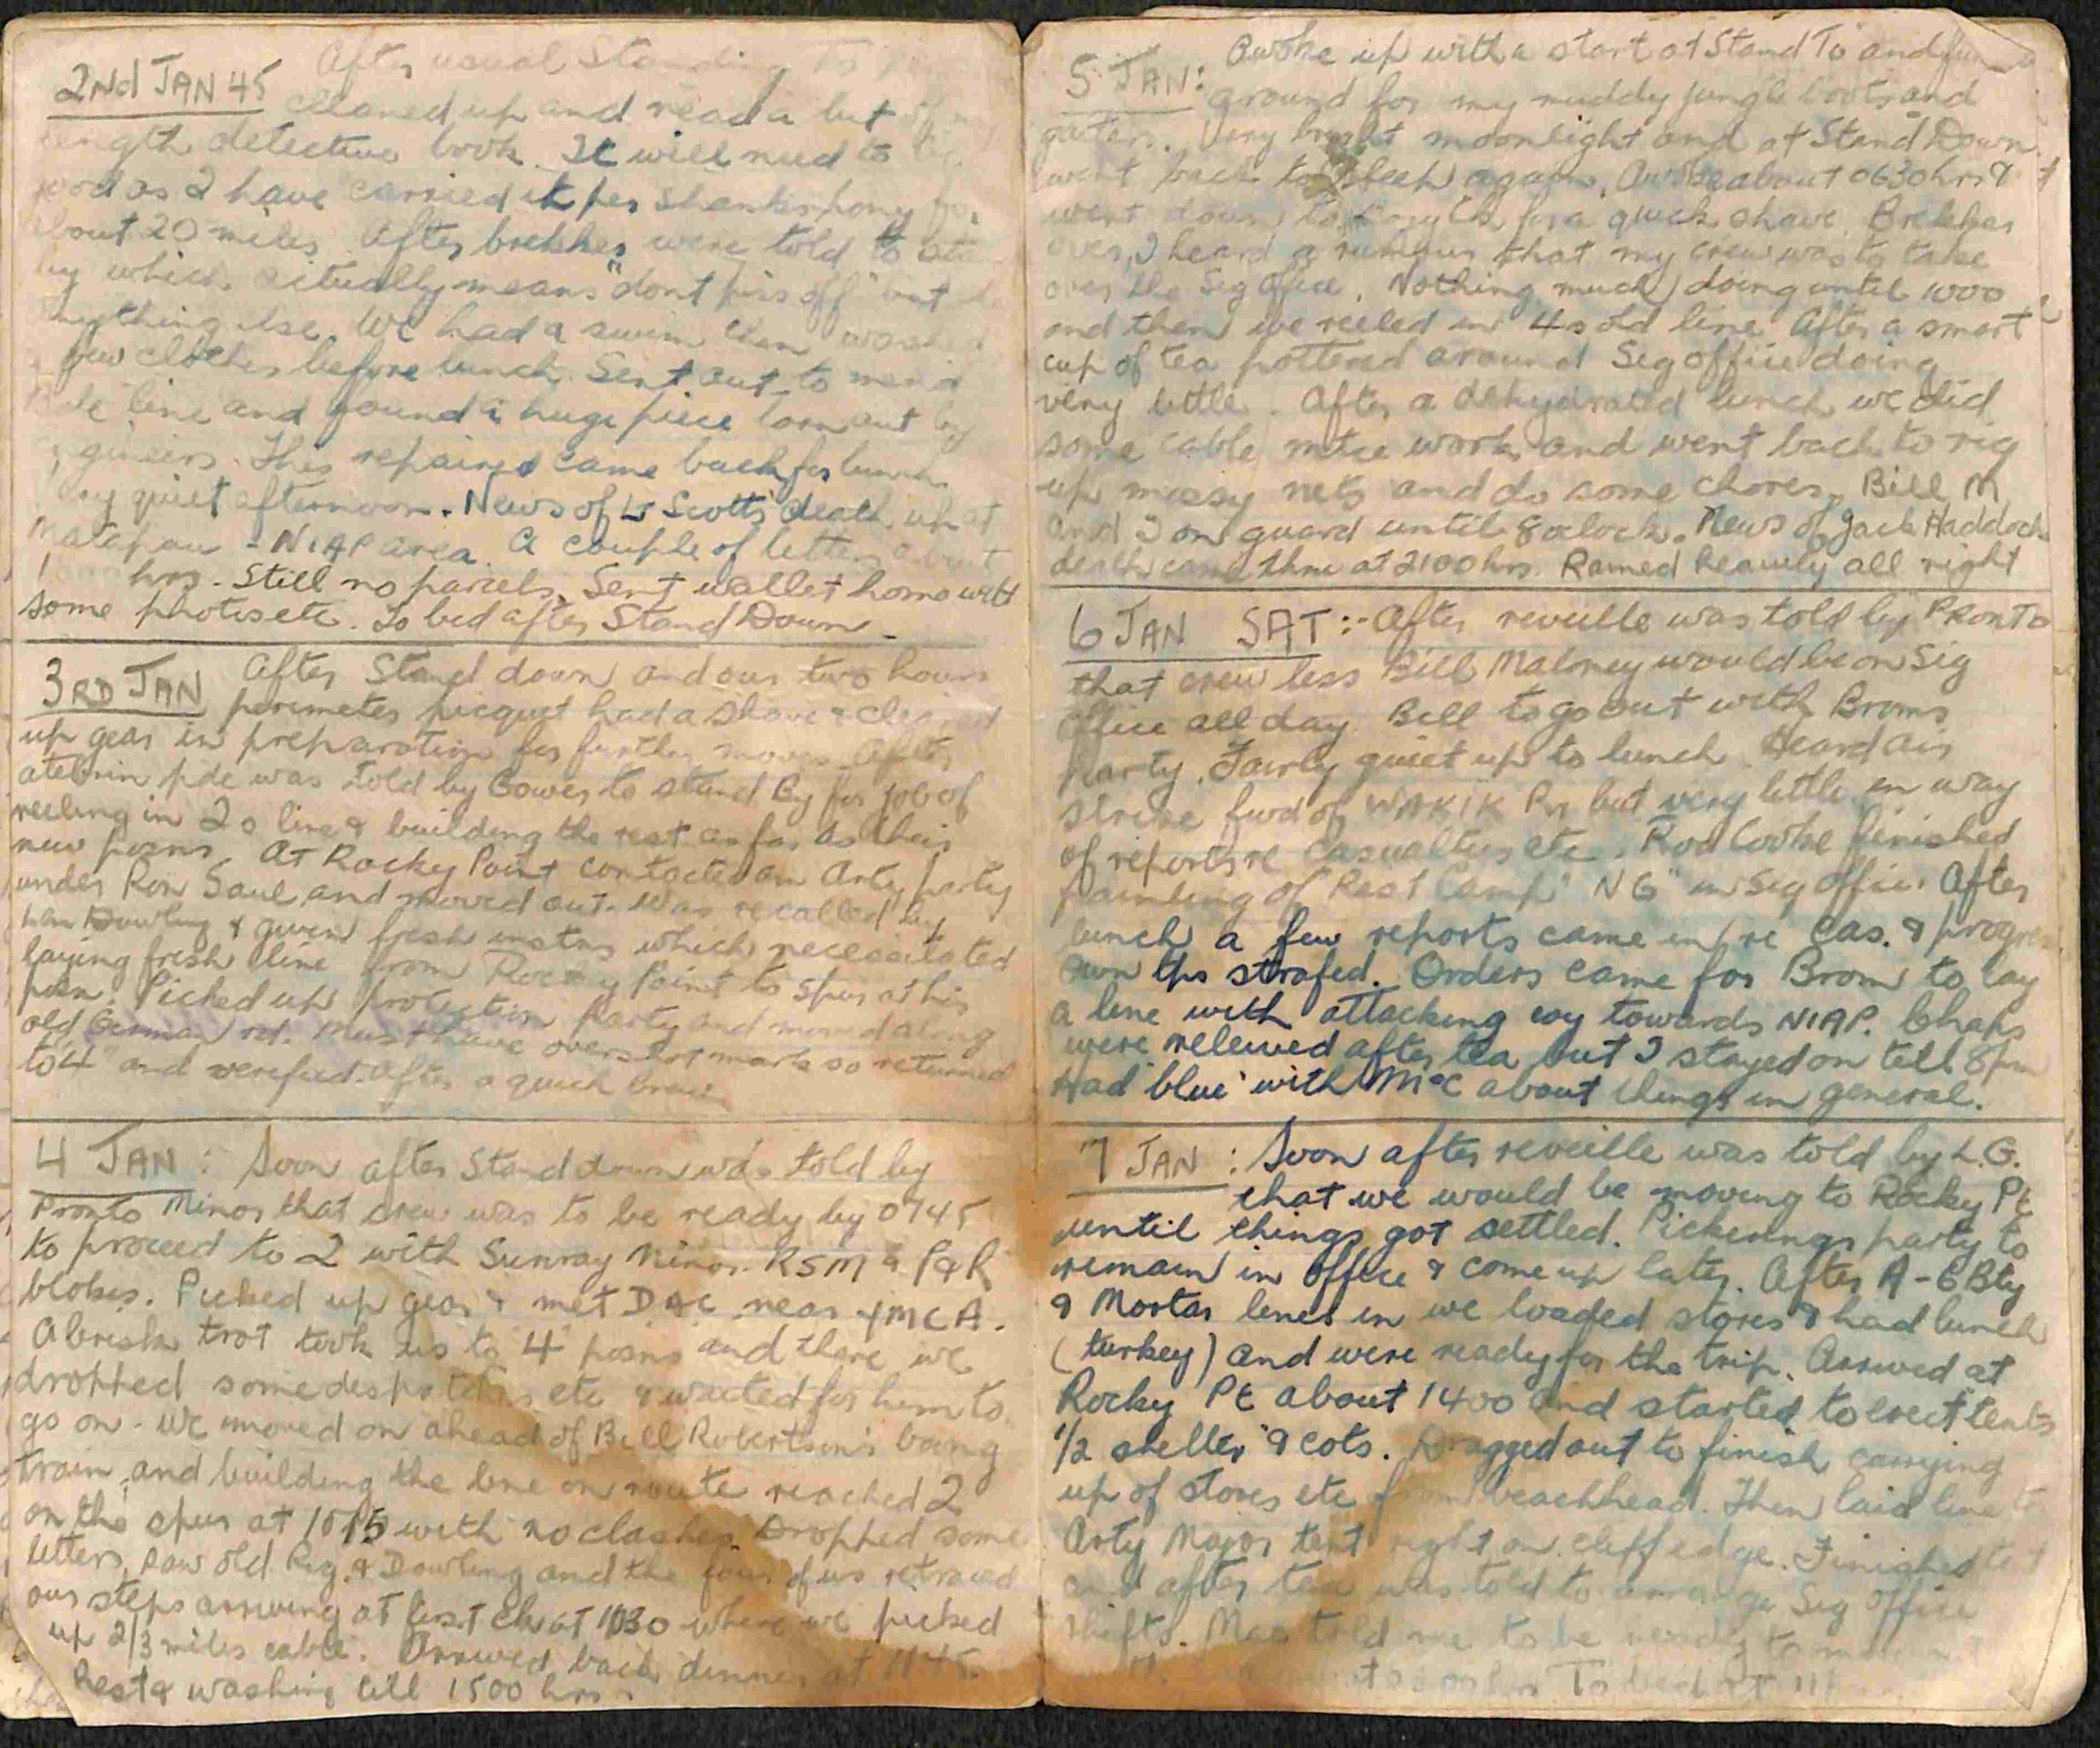 After usual Standing To
2Nd JAN 45 cleaned up and read a bit of a
length detective book. It will need to be
good as I have carried it per shanks pony for
about 20 miles. After brekker were told to
by which actually means "dont piss off" but
anything else. We had a swim then washed
few clothes before lunch. Sent out to mend
line and found a huge piece torn out by
engineers. This repaired came back for lunch.
Very quiet afternoon. News of Lt Scotts death up at
Matapau - NIAP area. A couple of letters about
hrs. Still no parcels. Sent wallet home with
some photos etc. To bed after Stand Down -
3RD JAN After Stand down and our two hours
perimeter picquet had a shave & cleaned
up gear in preparation for further moves. After
atebrin pde was told by Gower to stand By for job of
reeling in 2s line & building the rest as far as their
new posns. At Rocky Point contacted an Arty party
under Ron Saul and moved out. Was recalled by
Dowling & given fresh instns which necessitated
laying fresh line from Rocky Point to spur at his
posn. Picked up protection party and moved along
old German rd. Must have overshot mark so returned
to "4" and verified. After a quick brew
4 JAN : Soon after Stand down was told by
Pronto Minor that crew was to be ready by 0745
to proceed to 2 with Sunray Minor. RSM & P&R
blokes. Picked up gear & met DAC near YMCA.
A brisk trot took us to 4 posns and there we
dropped some despatches etc & waited for him to
go on - We moved on ahead of Bill Robertson's boong
train and building the line on route reached 2
on the spur at 1015 with no clashes. Dropped some
letters, saw old Reg. & Dowling and the four of us retraced
our steps arriving at first Ck at 1030 where we picked
up 2/3 miles cable. Arrived back dinner at 1145.
Rest & washing till 1500 hrs -
5 JAN: Awoke up with a start at Stand To and
around for my muddy jungle boots and
gaiters. Very bright moonlight and at Stand Down
went back to sleep again. Awoke about 0630 hrs &
went down to Ck for a quick shave. Brekker
over, I heard a rumour that my crew was to take
over the Sig Office. Nothing much doing until 1000
and then we reeled in 4s old line. After a smart
cup of tea pottered around Sig office doing
very little. After a dehydrated lunch we did
some cable mtce work and went back to rig
up mossy nets and do some chores. Bill M
and I on guard until 8 oclock. News of Jack Haddock
death came thru at 2100 hrs. Rained heavily all night
6 JAN SAT :- After reveille was told by PRONTO
that crew less Bill Maloney would be on Sig
Office all day. Bill to go out with Broms
party. Fairly quiet up to lunch. Heard air
strike fwd of WAKIK Rr but very little in way
of reports re Casualties etc. Rod Cooke finished
painting of "Rest Camp" NG" in Sig office. After
lunch a few reports came in re Cas. & progress
Own tps strafed. Orders came for Brom to lay
a line with attacking coy towards NIAP. Chaps
were relieved after tea but I stayed on till 8pm
Had 'blue' with McC about things in general.
7 JAN : Soon after reveille was told by L.G.
that we would be moving to Rocky Pt
until things got settled. Pickerings party to
remain in Office & come up later. After A - 6 Bty
& Mortar lines in we loaded stores & had lunch
(turkey) and were ready for the trip. Arrived at
Rocky Pt about 1400 and started to erect tents
"1/2 shelter" & cots. Dragged out to finish carrying
up of stores etc from beachhead. Then laid line to
Arty Major tent right on cliff edge. Finished
and after tea was told to arrange Sig Office
shifts. Mac told me to be ready to
To bed at 11